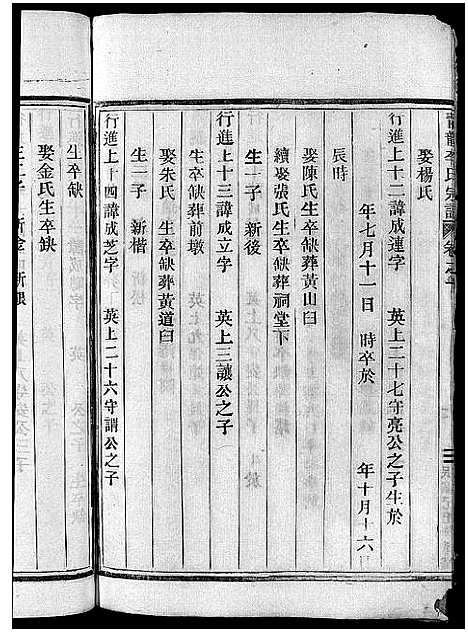 李氏宗譜
娶楊氏
行進上十二諱成連字 英上二十七守亮公之子生於
年七月十一日 時卒於 年十月十六
辰時
娶陳氏生卒缺葬黃山臼
續娶張氏生卒缺葬祠堂下
生一子 新後
行進上十三諱成立字 英上三讓公之子
生卒缺葬前墩
娶朱氏 生卒缺葬黃道臼
生一子 新楷
行進上十四諱成芝字 英上二十六守謂公之子
生卒缺
娶金氏生卒缺